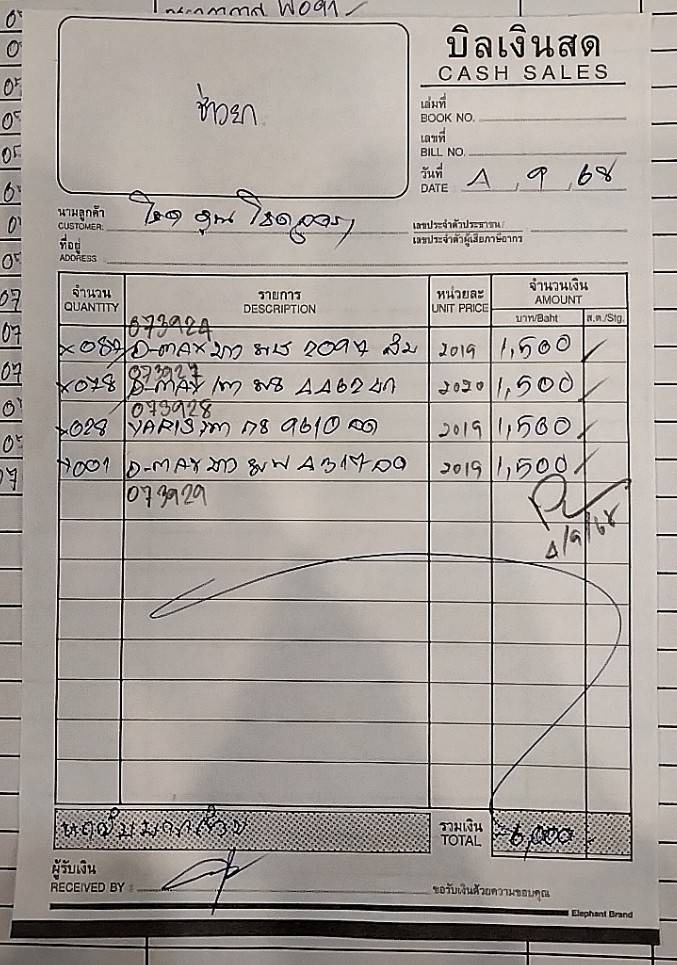 บิลเงินสด
CASH SALES
ช่างยา
เล่มที่
BOOK NO.
เลขที่
BILL NO.
วันที่
DATE 4 , 9 , 68
นามลูกค้า
CUSTOMER:
เลขประจำตัวประชาชน/
เลขประจำตัวผู้เสียภาษีอากร
ที่อยู่
ADDRESS
จำนวน รายการ หน่วยละ จำนวนเงิน
QUANTITY DESCRIPTION UNIT PRICE AMOUNT
บาท/Baht ส.ต./Stg.
073924
D-MAX ขาว 2019 1,500
073927
x078 D-MAX เทา 4462 2020 1,500
073928
x028 YARIS เทา 9610 2019 1,500
x001 D-MAX ขาว 2019 1,500
073929
4/9/68
หกพันบาทถ้วน รวมเงิน 6,000
TOTAL
ผู้รับเงิน
RECEIVED BY :
ขอรับเงินด้วยความขอบคุณ
Elephant Brand